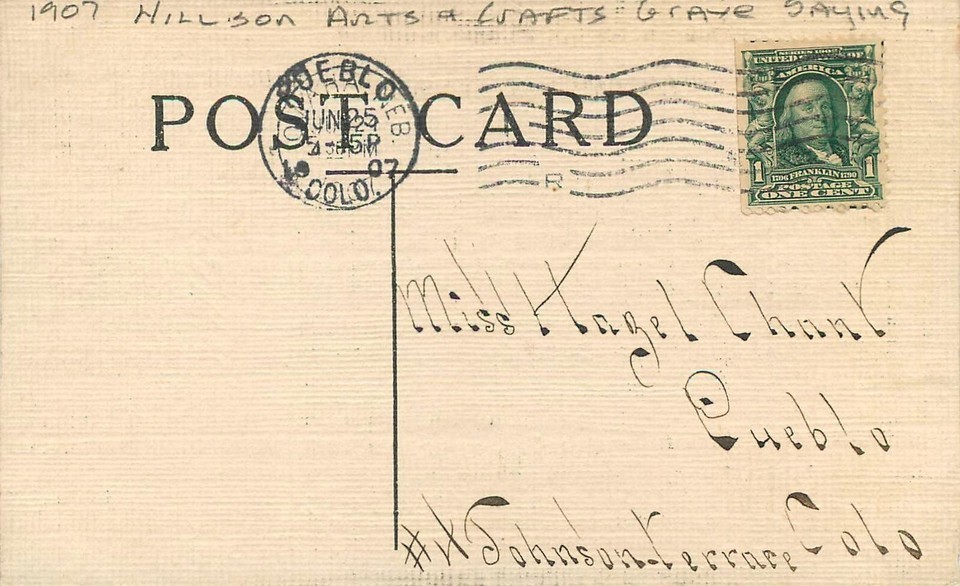 1907 HILLISON ARTS & CRAFTS GRAVE SAYING
POST CARD
PUEBLO
JUN 25
07
COLO.
NEB
R
SERIES 1902
UNITED STATES OF
AMERICA
1 1706 FRANKLIN 1790 1
POSTAGE
ONE CENT
Miss Hazel Chant
Pueblo
#4 Johnson Terrace Colo